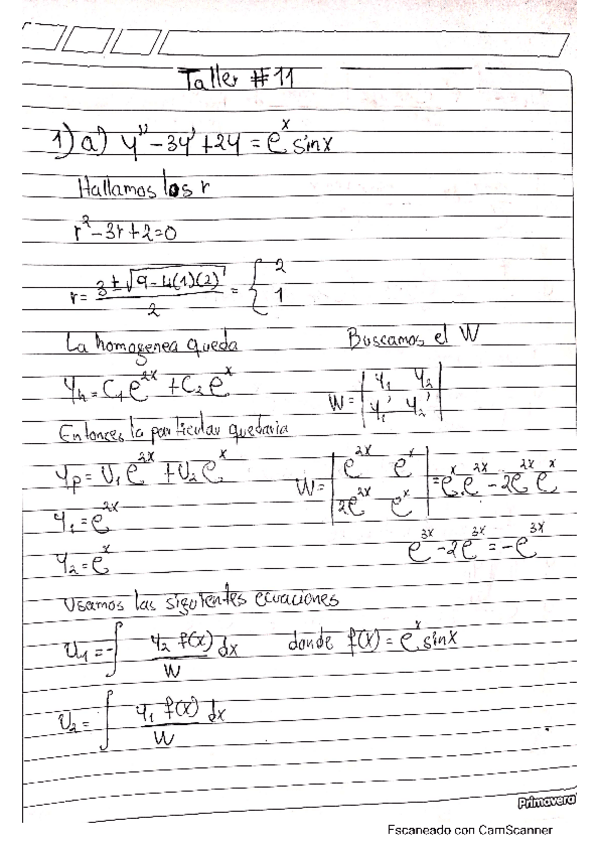 Taller #11
1) a) y'' - 3y' + 2y = e^x sinx
Hallamos los r
r^2 - 3r + 2 = 0
r = (3 ± √(9 - 4(1)(2))) / 2 = { 2 1
La homogenea queda
y_h = C_1 e^2x + C_2 e^x
Entonces la particular quedaria
y_p = U_1 e^2x + U_2 e^x
y_1 = e^2x
y_2 = e^x
Buscamos el W
W = | y_1 y_2 |
| y_1' y_2' |
W = | e^2x e^x | = e^x e^2x - 2e^2x e^x
| 2e^2x e^x |
e^3x - 2e^3x = -e^3x
Usamos las siguientes ecuaciones
U_1 = -∫ y_2 f(x) dx / W donde f(x) = e^x sinx
U_2 = ∫ y_1 f(x) dx / W
Primavera
Escaneado con CamScanner